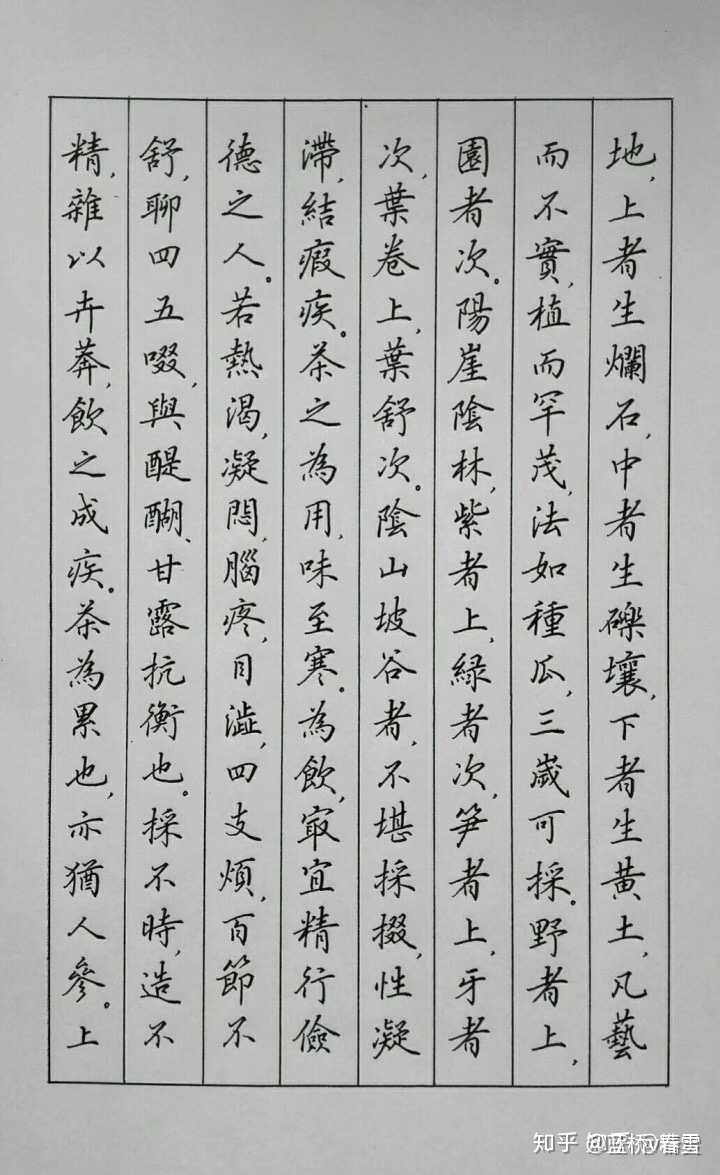 地,上者生爛石,中者生礫壤,下者生黄土,凡藝
而不實,植而罕茂,法如種瓜,三歲可採。野者上,
園者次。陽崖陰林,紫者上,綠者次,笋者上,牙者
次,葉卷上,葉舒次。陰山坡谷者,不堪採掇,性凝
滯,結瘕疾。茶之為用,味至寒。為飲,冣宜精行儉
德之人。若熱渴,凝悶,腦疼,目澁,四支煩,百節不
舒,聊四五啜,與醍醐、甘露抗衡也。採不時,造不
精,雜以卉莽,飲之成疾。茶為累也,亦猶人參。上
知乎